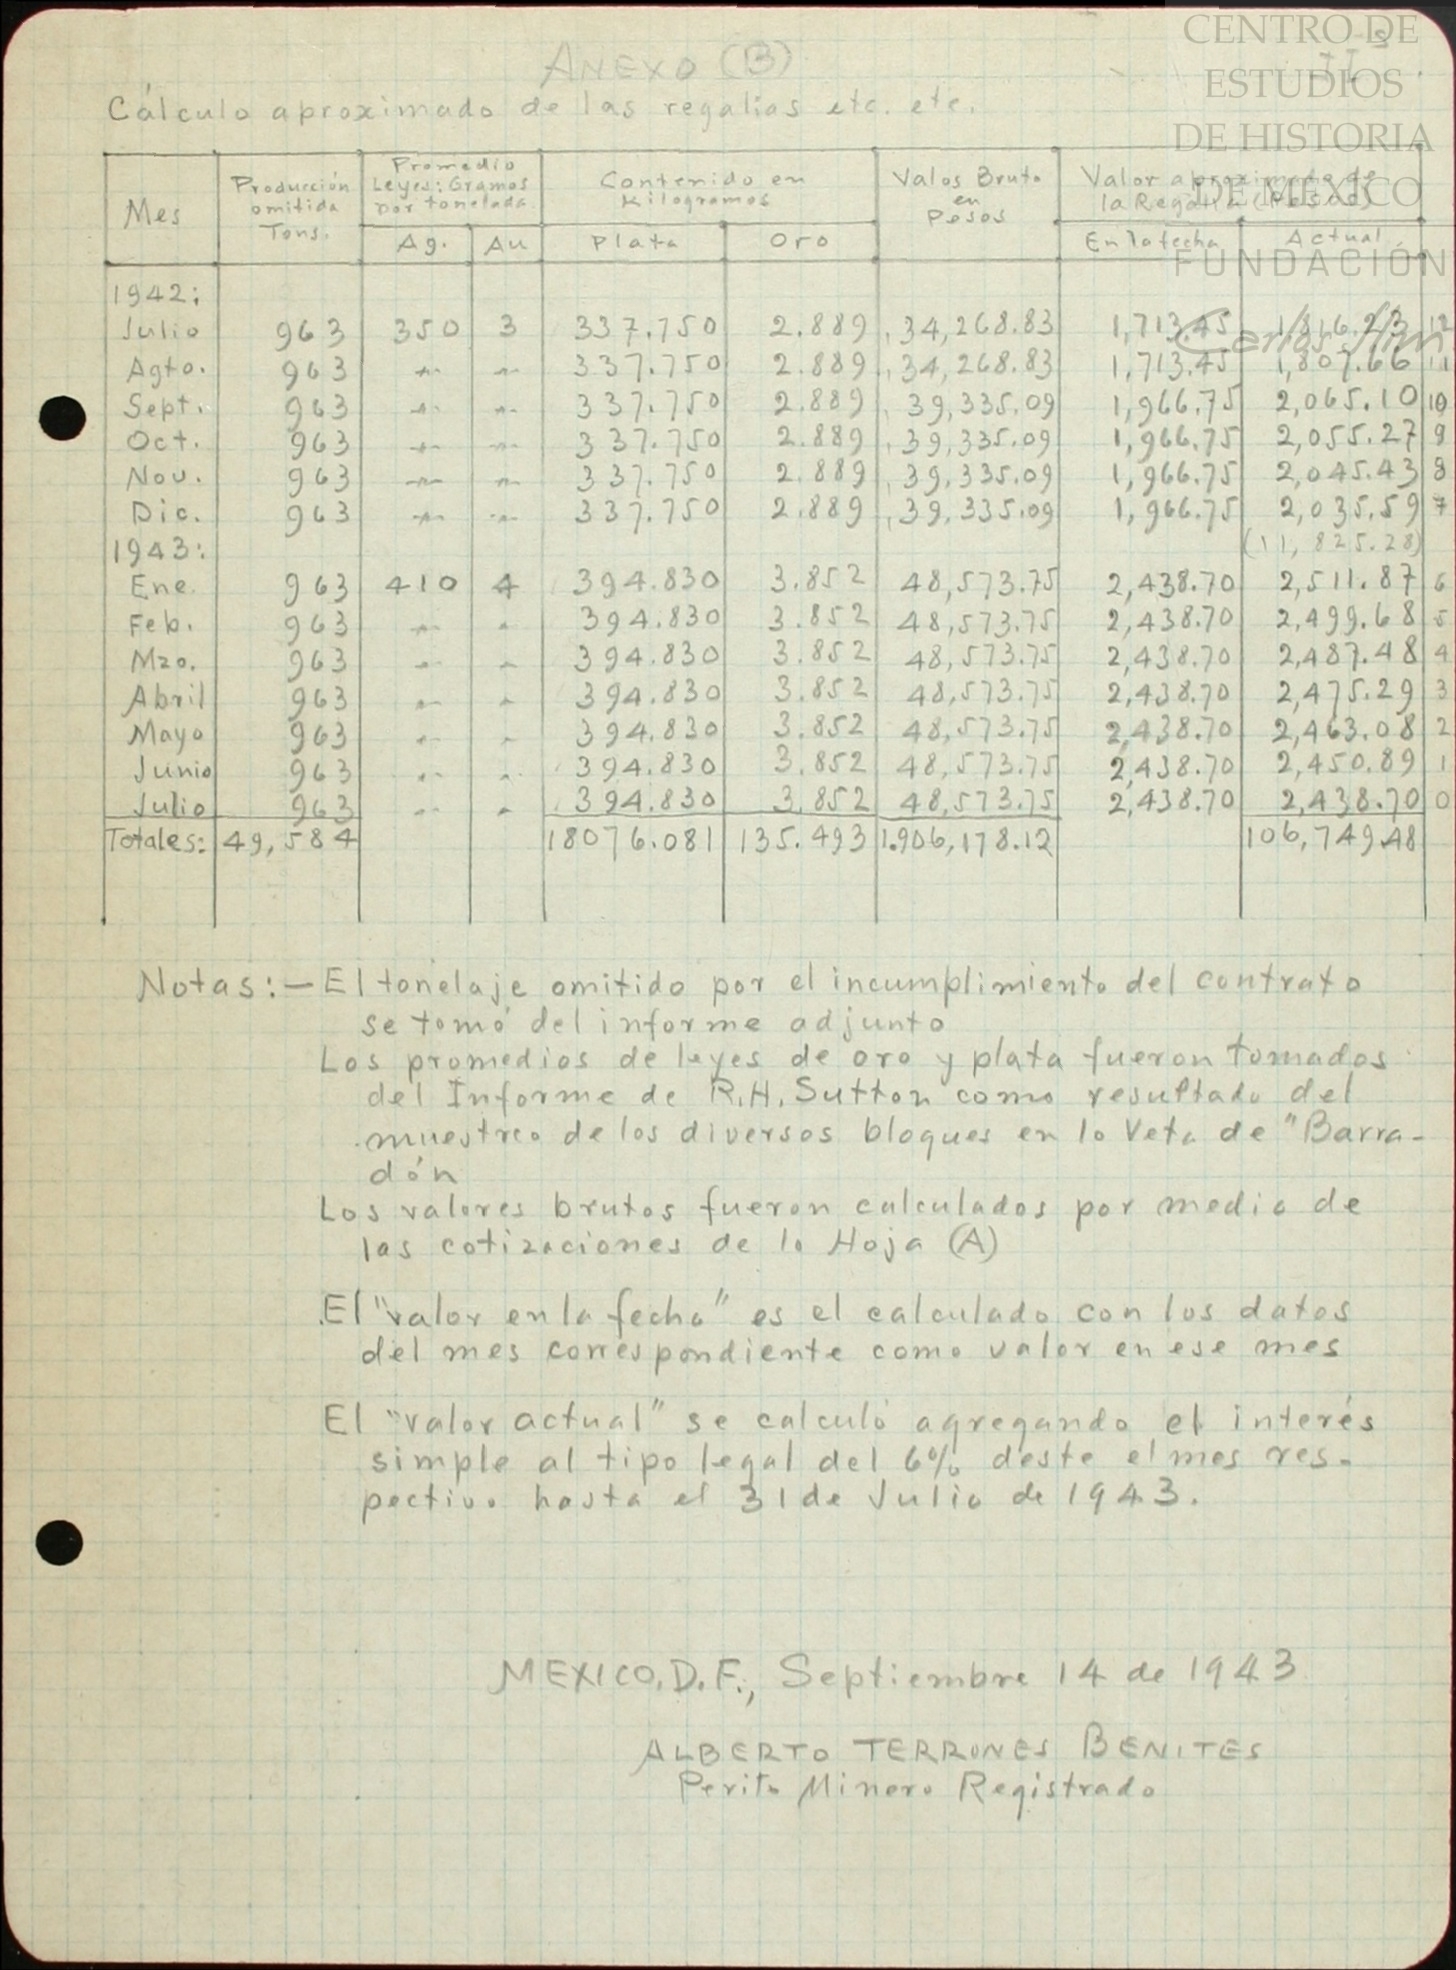 CENTRO DE
ESTUDIOS
DE HISTORIA
DE MEXICO
FUNDACIÓN
Carlos Slim
ANEXO (B)
Cálculo aproximado de las regalías etc. etc.
Mes Producción omitida Tons. Promedio Leyes: Gramos por tonelada Contenido en Kilogramos Valos Bruto en Pesos Valor aproximado de la Regalía (Pesos)
Ag. Au Plata Oro En la fecha Actual
1942:
Julio 963 350 3 337.750 2.889 34,268.83 1,713.45 1,816.23 12
Agto. 963 " " 337.750 2.889 34,268.83 1,713.45 1,807.66 11
Sept. 963 " " 337.750 2.889 39,335.09 1,966.75 2,065.10 10
Oct. 963 " " 337.750 2.889 39,335.09 1,966.75 2,055.27 9
Nov. 963 " " 337.750 2.889 39,335.09 1,966.75 2,045.43 8
Dic. 963 " " 337.750 2.889 39,335.09 1,966.75 2,035.59 7
1943: (11,825.28)
Ene. 963 410 4 394.830 3.852 48,573.75 2,438.70 2,511.87 6
Feb. 963 " " 394.830 3.852 48,573.75 2,438.70 2,499.68 5
Mzo. 963 " " 394.830 3.852 48,573.75 2,438.70 2,487.48 4
Abril 963 " " 394.830 3.852 48,573.75 2,438.70 2,475.29 3
Mayo 963 " " 394.830 3.852 48,573.75 2,438.70 2,463.08 2
Junio 963 " " 394.830 3.852 48,573.75 2,438.70 2,450.89 1
Julio 963 " " 394.830 3.852 48,573.75 2,438.70 2,438.70 0
Totales: 49,584 18076.081 135.493 1.906,178.12 106,749.48
Notas:- El tonelaje omitido por el incumplimiento del contrato
se tomó del informe adjunto
Los promedios de leyes de oro y plata fueron tomados
del Informe de R.H. Sutton como resultado del
muestreo de los diversos bloques en la Veta de "Barra-
dón
Los valores brutos fueron calculados por medio de
las cotizaciones de la Hoja (A)
El "valor en la fecha" es el calculado con los datos
del mes correspondiente como valor en ese mes
El "valor actual" se calculó agregando el interés
simple al tipo legal del 6% deste el mes res-
pectivo hasta el 31 de Julio de 1943.
MEXICO, D.F., Septiembre 14 de 1943
ALBERTO TERRONES BENITES
Perito Minero Registrado